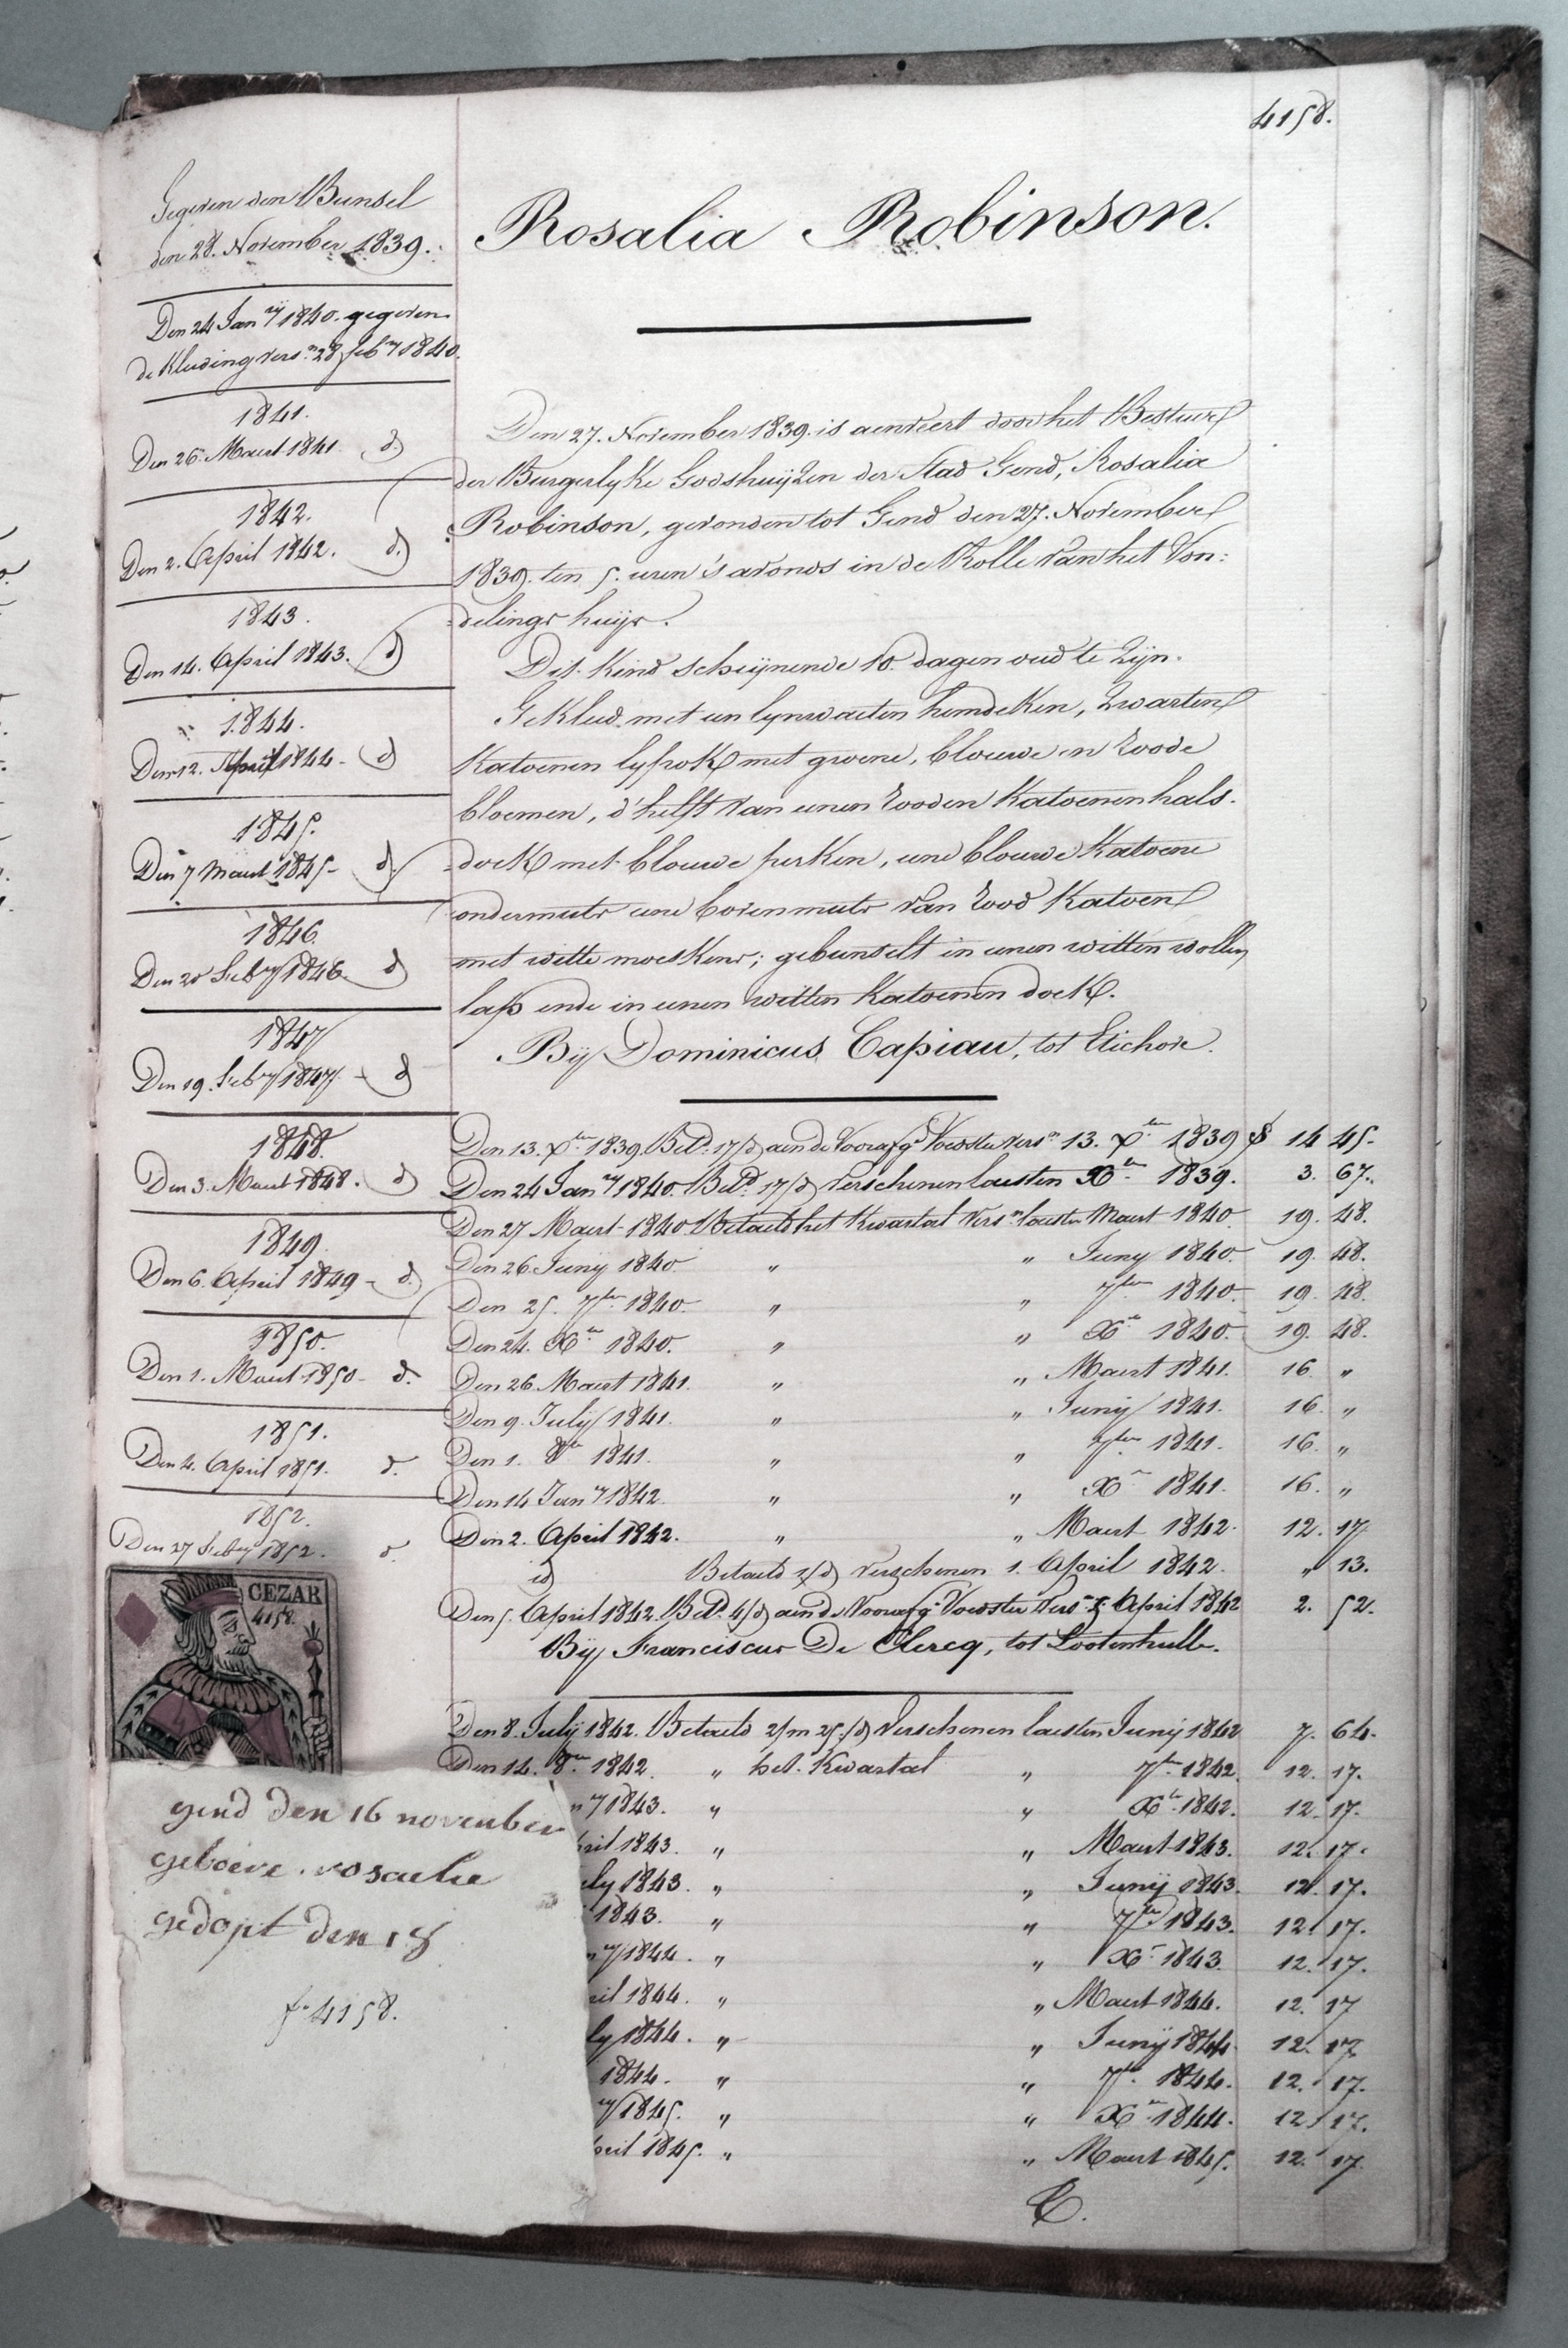 4158.
Gegeven den Bunsel
den 28. November 1839.
Den 24 Jan.ry 1840. gegeven
de Kleeding vers.n 28 feb.ry 1840.
1841.
Den 26. Maert 1841. d)
1842.
Den 2. April 1842. d)
1843.
Den 14. April 1843. d)
1844.
Den 12. April 1844 - d)
1845.
Den 7 Maert 1845 - d)
1846.
Den 20 Feb.ry 1846 d)
1847
Den 19. Feb.ry 1847. - d)
1848.
Den 3. Maert 1848. d)
1849.
Den 6. April 1849 - d.)
1850.
Den 1. Maert 1850 - d.
1851.
Den 4. April 1851. d.
1852.
Den 27 Feb.ry 1852. d.
Rosalia Robinson.
Den 27. November 1839. is aenveert door het Bestuer
der Burgerlyke Godshuijzen der Stad Gend, Rosalia
Robinson, gevonden tot Gend den 27. November
1839. ten 5. uren 's avonds in de Rolle van het Von:
delings huijs.
Dit Kind schijnende 10. dagen oud te Zijn.
Gekleed met een lynwaeten hemdeken, Zwarten
Katoenen lyfrok met groene, blauwe en roode
bloemen, d'helft van eenen rooden Katoenen hals.
doek met blauwe perken, eene blauwe Katoene
ondermuts eene bovenmuts van rood Katoen
met witte moeskens; gebunselt in eenen witten wollen
lap ende in eenen witten Katoenen doek.
Bij Dominicus Capiau, tot Etichove.
Den 13. X.ber 1839. Bet.d 17/d) aen de Vooraf.g. Voedster vers.n 13. X.ber 1839 14 45.
Den 24 Jan.ry 1840. Bet.d 17/d) Verschenen laesten X.ber 1839. 3. 67.
Den 27 Maert 1840 Betaeld het Kwartael Vers.n laesten Maert 1840 19. 48.
Den 26. Junij 1840 " " Juny 1840 19. 48.
Den 25. 7.ber 1840 " " 7.ber 1840. 19. 48.
Den 24. X.ber 1840. " " X.ber 1840. 19. 48.
Den 26 Maert 1841. " " Maert 1841. 16. "
Den 9. July 1841. " " Junij 1841. 16. "
Den 1. 8.ber 1841. " " 7.ber 1841. 16. "
Den 14 Jan.ry 1842. " " X.ber 1841. 16. "
Den 2. April 1842. " " Maert 1842. 12. 17.
id) Betaeld 1/d) verschenen 1. April 1842. " 13.
Den 5. April 1842. Bet.d 4/d) aen de Vooraf.g. Voedster Vers.n 5. April 1842 2. 52.
Bij Franciscus De Clercq, tot Lootenhulle.
Den 8. Julij 1842. Betaeld 2/m 25/d) Verschenen laesten Junij 1842 7. 64.
Den 14. 8.ber 1842. " het Kwartael " 7.ber 1842. 12. 17.
ry 1843. " " X.ber 1842. 12. 17.
pril 1843. " " Maert 1843. 12. 17.
uly 1843. " " Junij 1843. 12. 17.
1843. " " 7.ber 1843. 12. 17.
ry 1844. " " X.ber 1843. 12. 17.
ril 1844. " " Maert 1844. 12. 17
ly 1844. " " Junij 1844. 12. 17.
1844. " " 7.ber 1844. 12. 17.
ry 1845. " " X.ber 1844. 12. 17.
pril 1845. " " Maert 1845. 12. 17
CEZAR
4158.
gend den 16 november
geboere rosaelie
gedopt den 18
f.o 4158.